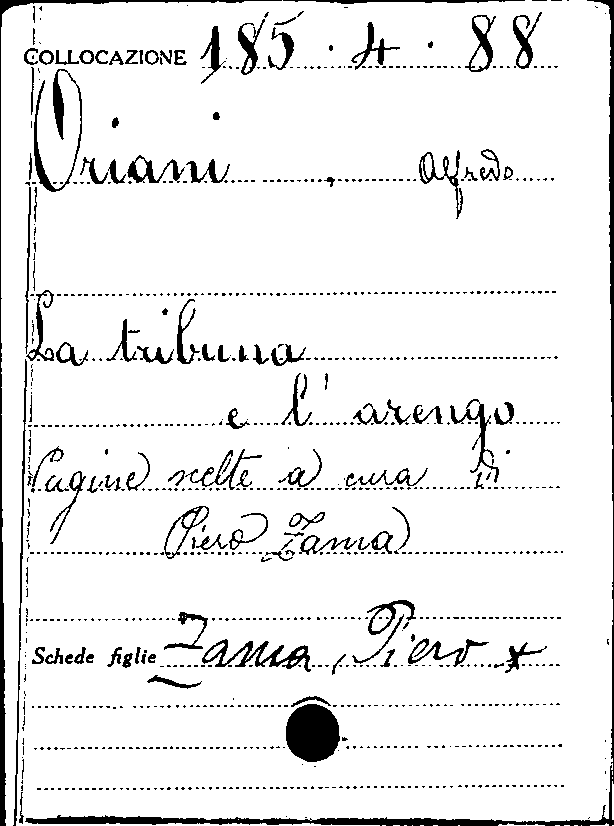 COLLOCAZIONE 185.4.88
Oriani, Alfredo
La tribuna
e l'arengo
Pagine scelte a cura di
Piero Zama
Schede figlie Zama, Piero *